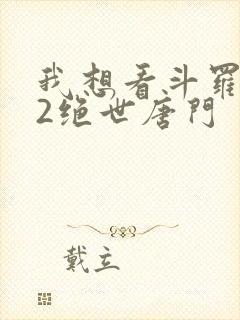 我想看斗羅
2绝世唐門
戴立